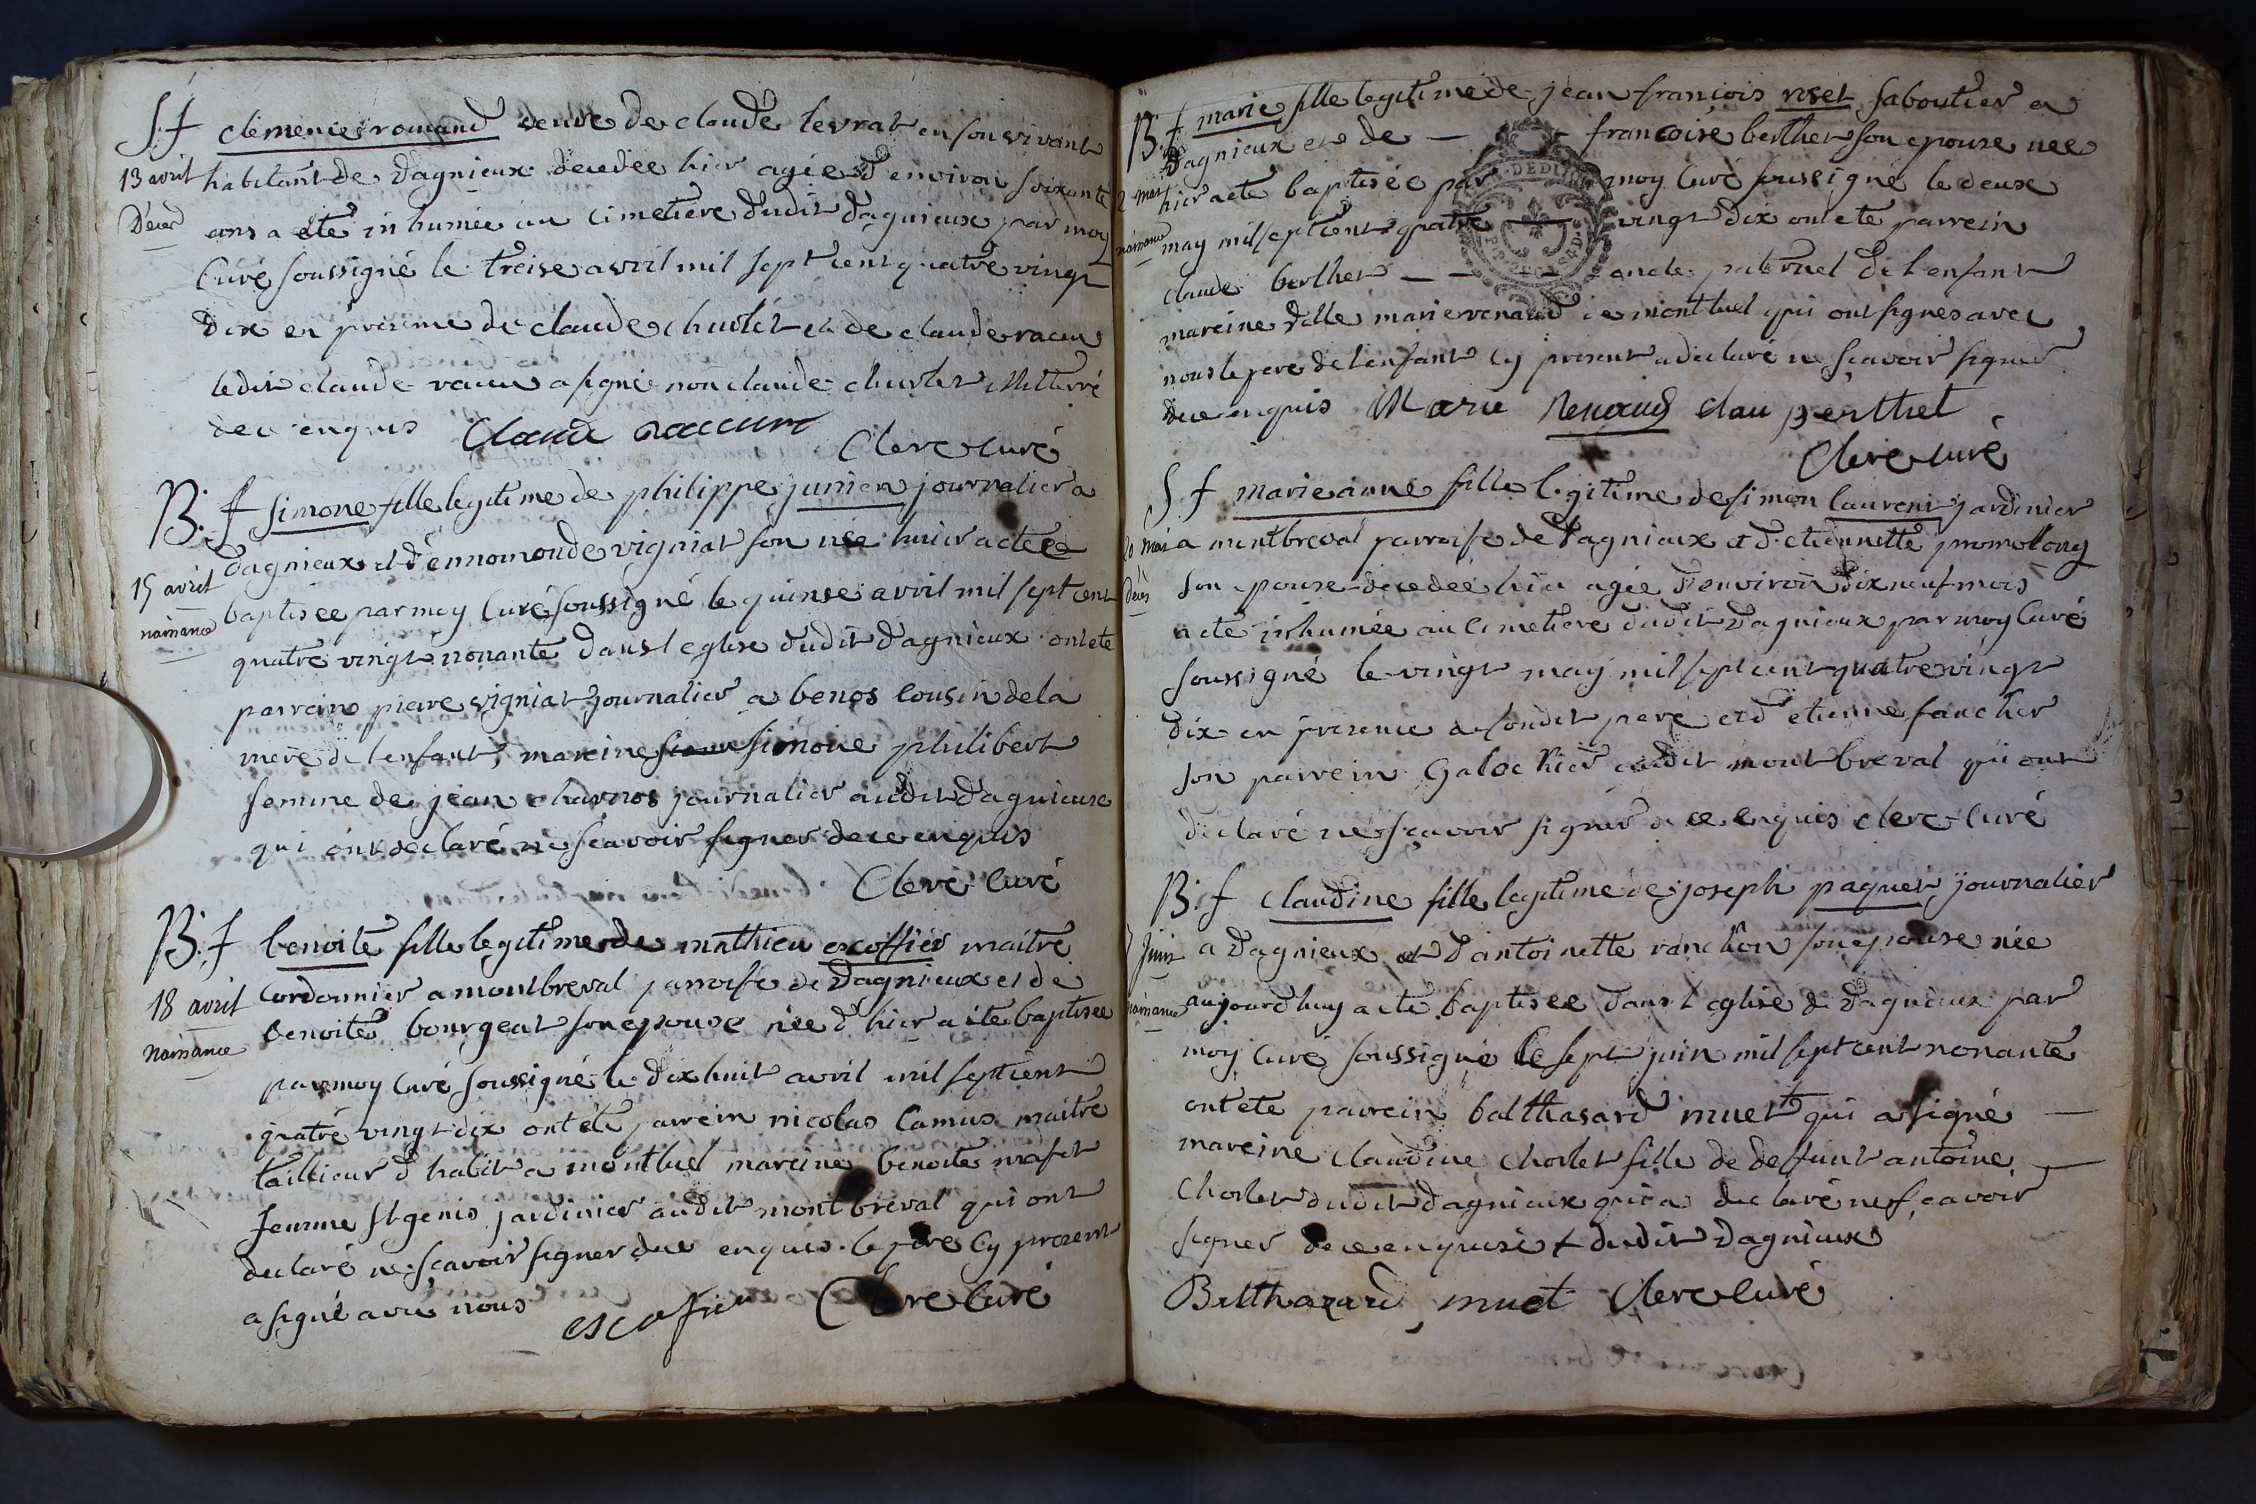 S.f clemence romand veuve de claude levrat en son vivant
13 avril habitant de dagnieux decedée hier agée d'environ soixante
Décès ans a eté inhumée au cimetiere dudit dagnieux par moy
Curé soussigné le treise avril mil sept cent quatre vingt
dix en presence de claude churlet et de claude racur
ledit claude racur a signé non claude churlet
de ce enquis Claude raccurt
Clerc curé
B.f simone fille legitime de philippe junien journalier a
dagnieux et d'ennomonde vigniat son née hier a eté
15 avril baptisée par moy Curé soussigné le quinse avril mil sept cent
naissance quatre vingt nonante dans l'eglise dudit dagnieux ont eté
parrein pierre vigniat journalier a benos cousin de la
mere de l'enfant, mareine simone philibert
femme de jean charvos journalier audit dagnieux
qui ont declaré ne scavoir signer de ce enquis
Clerc Curé
B.f benoite fille legitime de mathieu escoffier maitre
Cordonnier a montbreval parroisse de dagnieux et de
18 avril benoite bourgeat son epouse née d'hier a eté baptisée
naissance
par moy Curé soussigné le dix huit avril mil sept cent
quatre vingt dix ont eté parrein nicolas Camus maitre
tailleur d'habit a montluel mareine benoite
femme St genis jardinier audit montbreval qui ont
declaré ne sçavoir signer de ce enquis le pere cy present
a signé avec nous escofier Clerc Curé
B.f marie fille legitime de jean françois roset saboutier a
dagnieux et de — françoise berthet son epouse née
2 mai hier a eté baptisée par moy Curé soussigné le deux
naissance may mil sept cent quatre vingt dix ont eté parrein
claude berthet — — oncle paternel de l'enfant
mareine dlle marie renaud de montluel qui ont signés avec
nous le pere de l'enfant cy present a declaré ne sçavoir signer
de ce enquis Marie Renaud Clau perthet
Clerc curé
S.f marie anne fille legitime de simon laurent jardinier
20 mai a montbreval parroisse de dagnieux et d'etiennette
décès son epouse decedée hier agée d'environ dix neuf mois
a eté inhumée au cimetiere dudit dagnieux par moy Curé
soussigné le vingt may mil sept cent quatre vingt
dix en presence de sondit pere et d'etienne faucher
son parrein Galochier audit montbreval qui ont
declaré ne sçavoir signer de ce enquis clerc Curé
B.f Claudine fille legitime de joseph paquet journalier
7 juin a dagnieux et d'antoinette ranchon son epouse née
naissance aujourd'huy a eté baptisée dans l'eglise de dagnieux par
moy Curé soussigné le sept juin mil sept cent nonante
ont eté parrein balthasard muet + qui a signé —
mareine claudine chorlet fille de deffunt antoine —
Chorlet dudit dagnieux qui a declaré ne sçavoir
signer de ce enquise + dudit dagnieux
Balthazard muet Clerc Curé